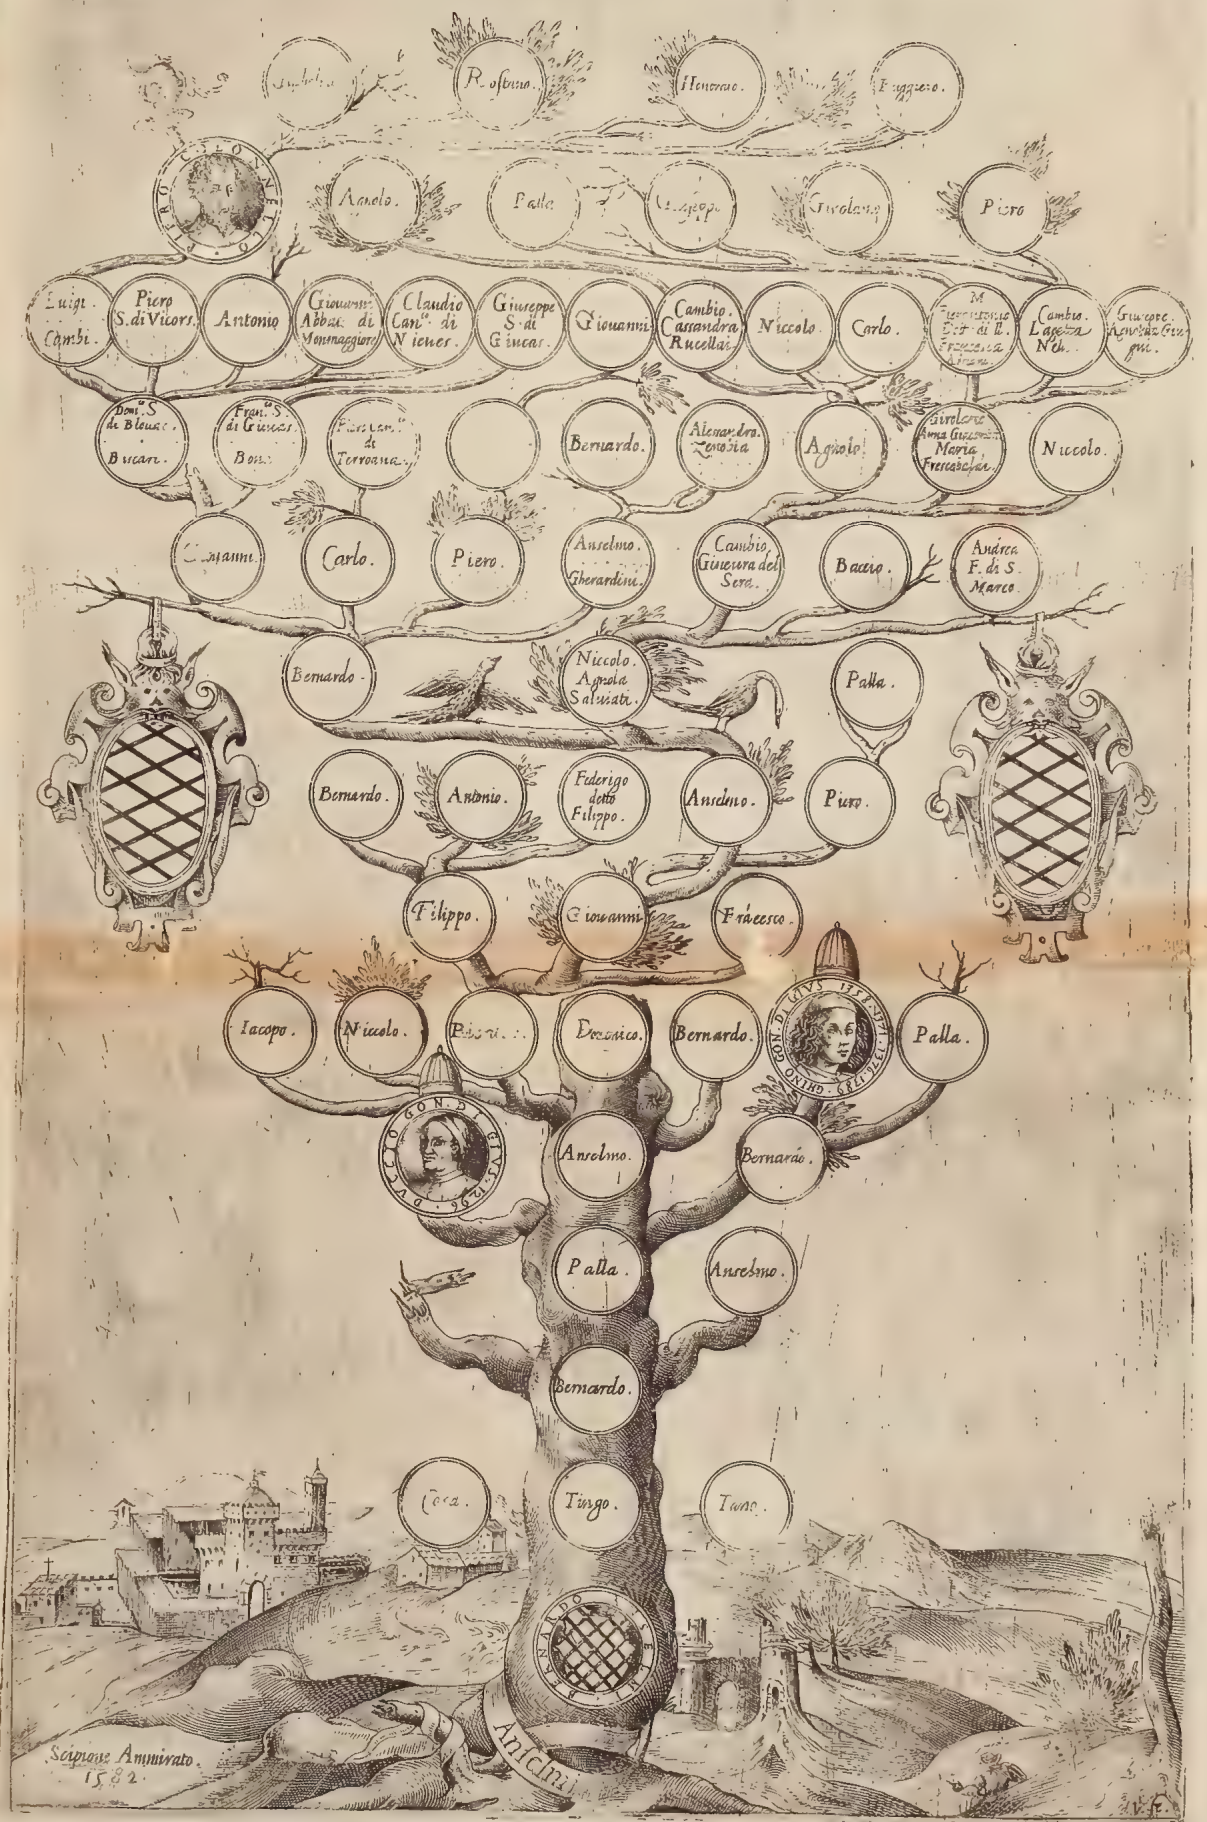 Rostano.
Honorato.
Ruggiero.
PIERO COLONNELLO
Agnolo.
Palla
Girolamo
Piero
Luigi
Cambi.
Piero
S. di Vicors.
Antonio
Giovanni
Abbat. di
Monmaggiore
Claudio
Canco. di
Nieues.
Giuseppe
S. di
Gineas.
Giovanni
Cambio.
Cassandra
Rucellai
Niccolo.
Carlo.
M
Cambio.
Giuseppe.
S.
Bucari.
Fran. S.
di Gineas.
di
Terroana.
Bernardo.
Alessandro.
Zenobia
Agnolo.
Girolamo
Anna
Maria
Niccolo.
Giovanni.
Carlo.
Piero.
Anselmo.
Gherardini.
Cambio
Gineura del
Sera.
Baccio.
Andrea
F. di S.
Marco.
Bernardo.
Niccolo.
Agnola
Saluiati.
Palla.
Bernardo.
Antonio.
Federigo
detto
Filippo.
Anselmo.
Piero.
Filippo.
Giouanni
Frãcesco.
Iacopo.
Niccolo.
Domenico.
Bernardo.
GHINO GON. DI GIVS 1358. 1371. 1376. 1786.
Palla.
DVCCIO GON. DI GIVS. 1296.
Anselmo.
Bernardo.
Palla.
Anselmo.
Bernardo.
Tingo.
BERNARDO
Anselmi
Scipione Ammirato.
1582.